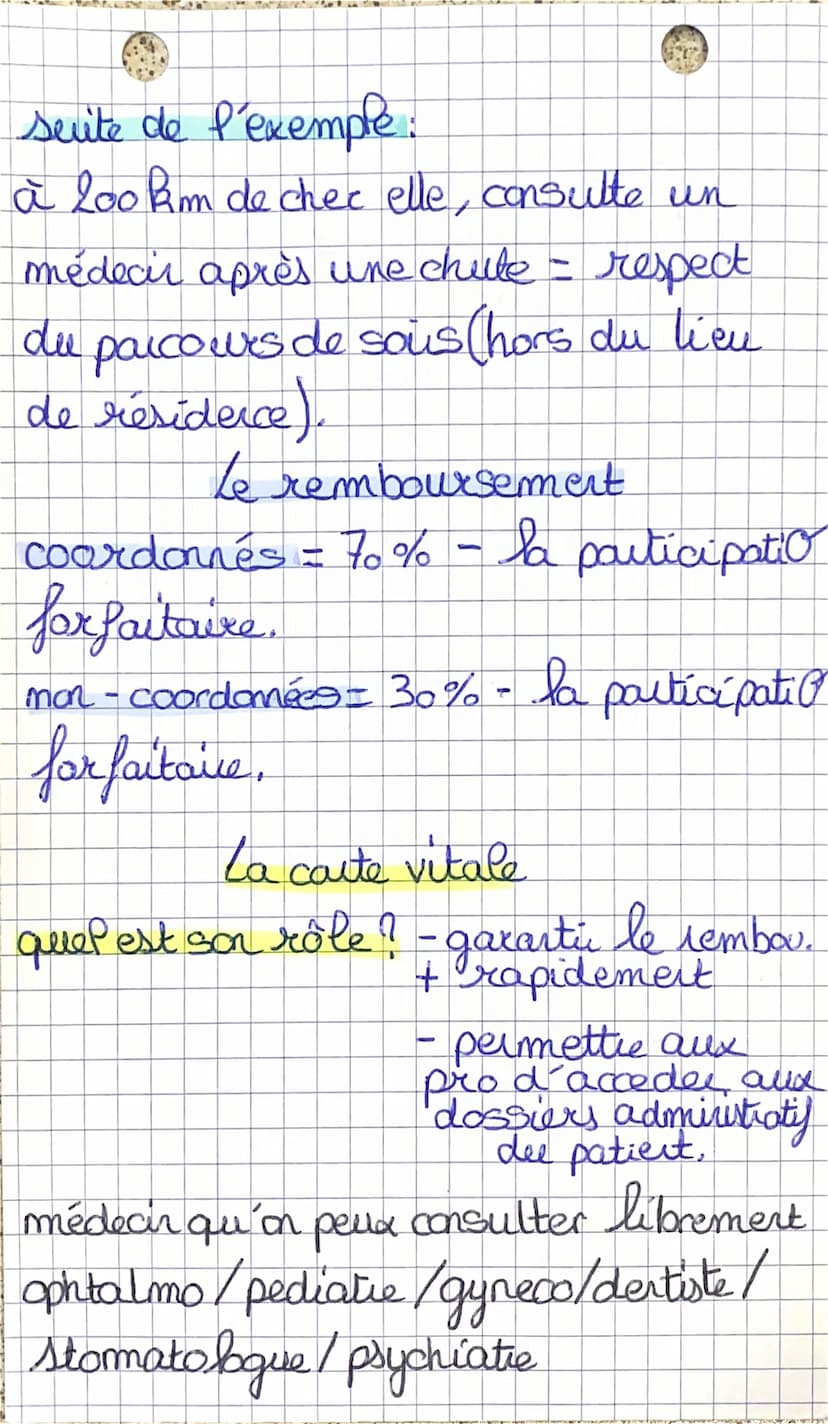 suite de l'exemple :
à 200 km de chec elle, consulte un
médecin après une chute = respect
du parcours de soins (hors du lieu
de résidence).
Le remboursement
coordonnés = 70% - la participatio
forfaitaire.
non - coordonnées = 30% - la participatio
forfaitaire.
La carte vitale
quel est son rôle ? - garantir le rembou.
+ rapidement
- permettre aux
pro d'acceder aux
dossiers administratif
du patient.
médecin qu'on peux consulter librement
ophtalmo / pediatre / gyneco / dentiste /
stomatologue / psychiatre